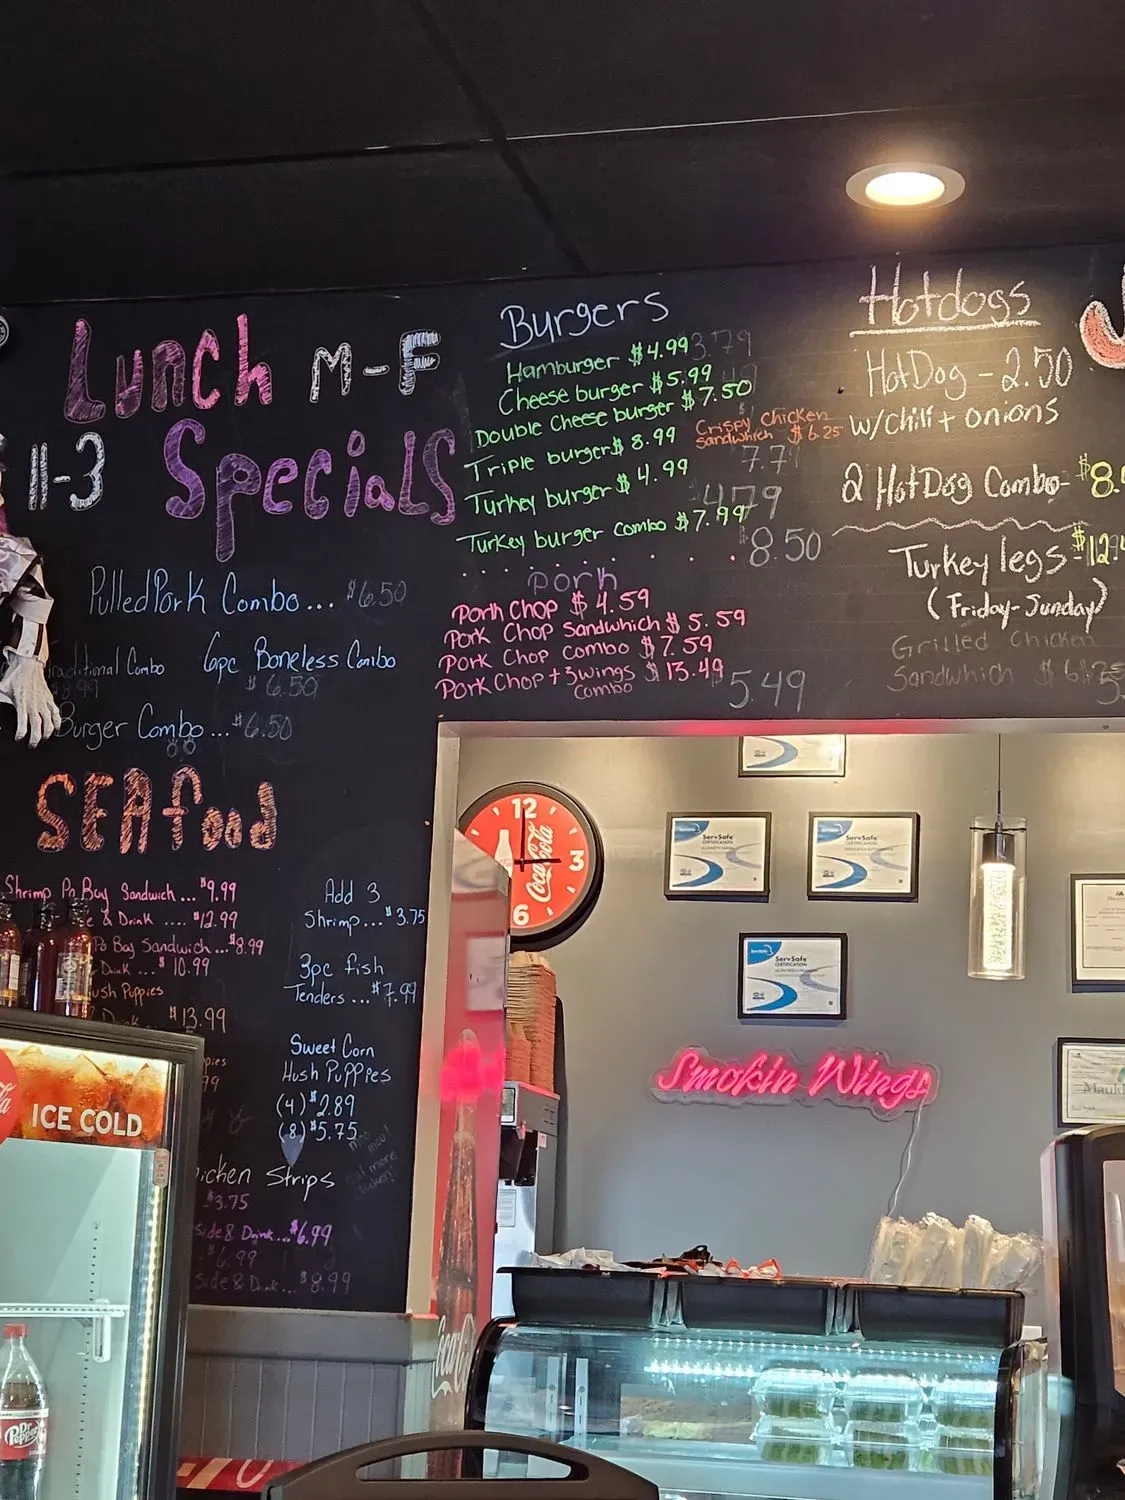 Lunch M-F
11-3 Specials
Pulled Pork Combo... $6.50
Combo
6pc Boneless Combo
$6.50
Burger Combo... $6.50
SEAfood
Shrimp Po Boy Sandwich... $9.99
& Drink .... $12.99
Po Boy Sandwich... $8.99
Drink ... $10.99
ush Puppies
Drink... $13.99
pies
99
Add 3
Shrimp... $3.75
3pc fish
Tenders ... $7.99
Sweet Corn
Hush Puppies
(4) $2.89
(8) $5.75
eat more
chicken!
icken Strips
$3.75
Side & Drink... $6.99
$6.99
Side & Drink... $8.99
Burgers
Hamburger $4.99 3.79
Cheese burger $5.99
Double Cheese burger $7.50
Crispy Chicken
Sandwhich $6.25
Triple burger $8.99
7.79
Turkey burger $4.99
4.79
Turkey burger combo $7.99
$8.50
Pork
Pork Chop $4.59
Pork Chop Sandwhich $5.59
Pork Chop combo $7.59
Pork Chop + 3 wings $13.49
combo
5.49
Hotdogs
HotDog - 2.50
w/chili + onions
2 HotDog Combo- $8.
Turkey legs - $12.
(Friday-Sunday)
Grilled Chicken
Sandwhich $6.25
12
3
6
Coca-Cola
ServSafe
CERTIFICATION
ServSafe
CERTIFICATION
ServSafe
CERTIFICATION
Smokin Wings
ICE COLD
Dr Pepper